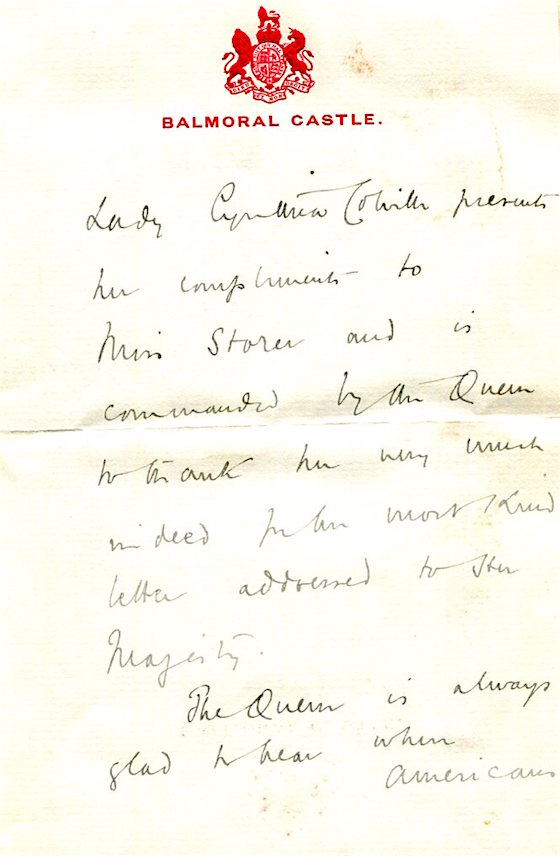 BALMORAL CASTLE.
Lady Cynthia Colville presents
her compliments to
Miss Storer and is
commanded by the Queen
to thank her very much
indeed for her most kind
letter addressed to Her
Majesty.
The Queen is always
glad to hear when
Americans